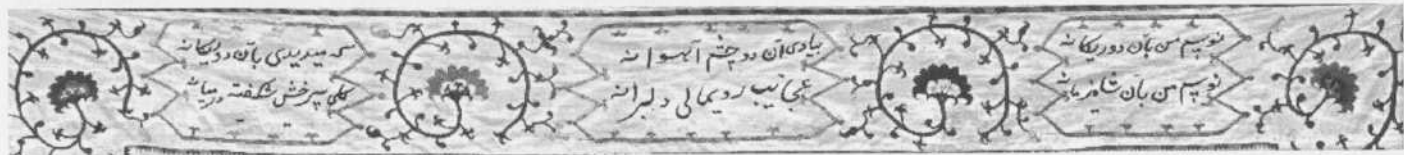 نویسم من بآن دوریکانه
نویسم من بآن شاه زمانه
بیادی آن دو چشم آهوانه
عجایب رویمالی دلبرانه
میدیدی بآن دریکانه
کلی سرخش شکفته درمیانه